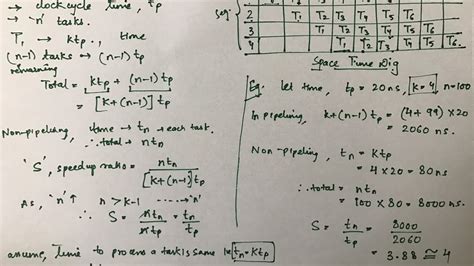 → clock cycle time, tp
→ 'n' tasks.
T1 → ktp., time
(n-1) tasks → (n-1)tp
remaining
Total = ktp + (n-1)tp
= [k+(n-1)]tp
Non-pipelining, time → tn → each task.
∴ total = ntn
'S', speedup ratio = ntn / [k+(n-1)]tp
As, 'n'↑ n > k-1 ----→ 'n'
∴ S = ntn / ntp = tn / tp
assume, time to process a task is same tn = ktp
seg:
2 T1 T2 T3 T4 T5 T6
3 T1 T2 T3 T4 T5 T6
4 T1 T2 T3 T4 T5 T6
Space Time Dig
Eg: let time, tp = 20ns, k = 4, n=100
In pipelining, k+(n-1)tp = (4+99)x20
= 2060 ns.
Non-pipelining, tn = ktp
= 4 x 20 = 80ns
∴ total = ntn
= 100 x 80 = 8000 ns.
S = tn / tp = 8000 / 2060
= 3.88 ≅ 4